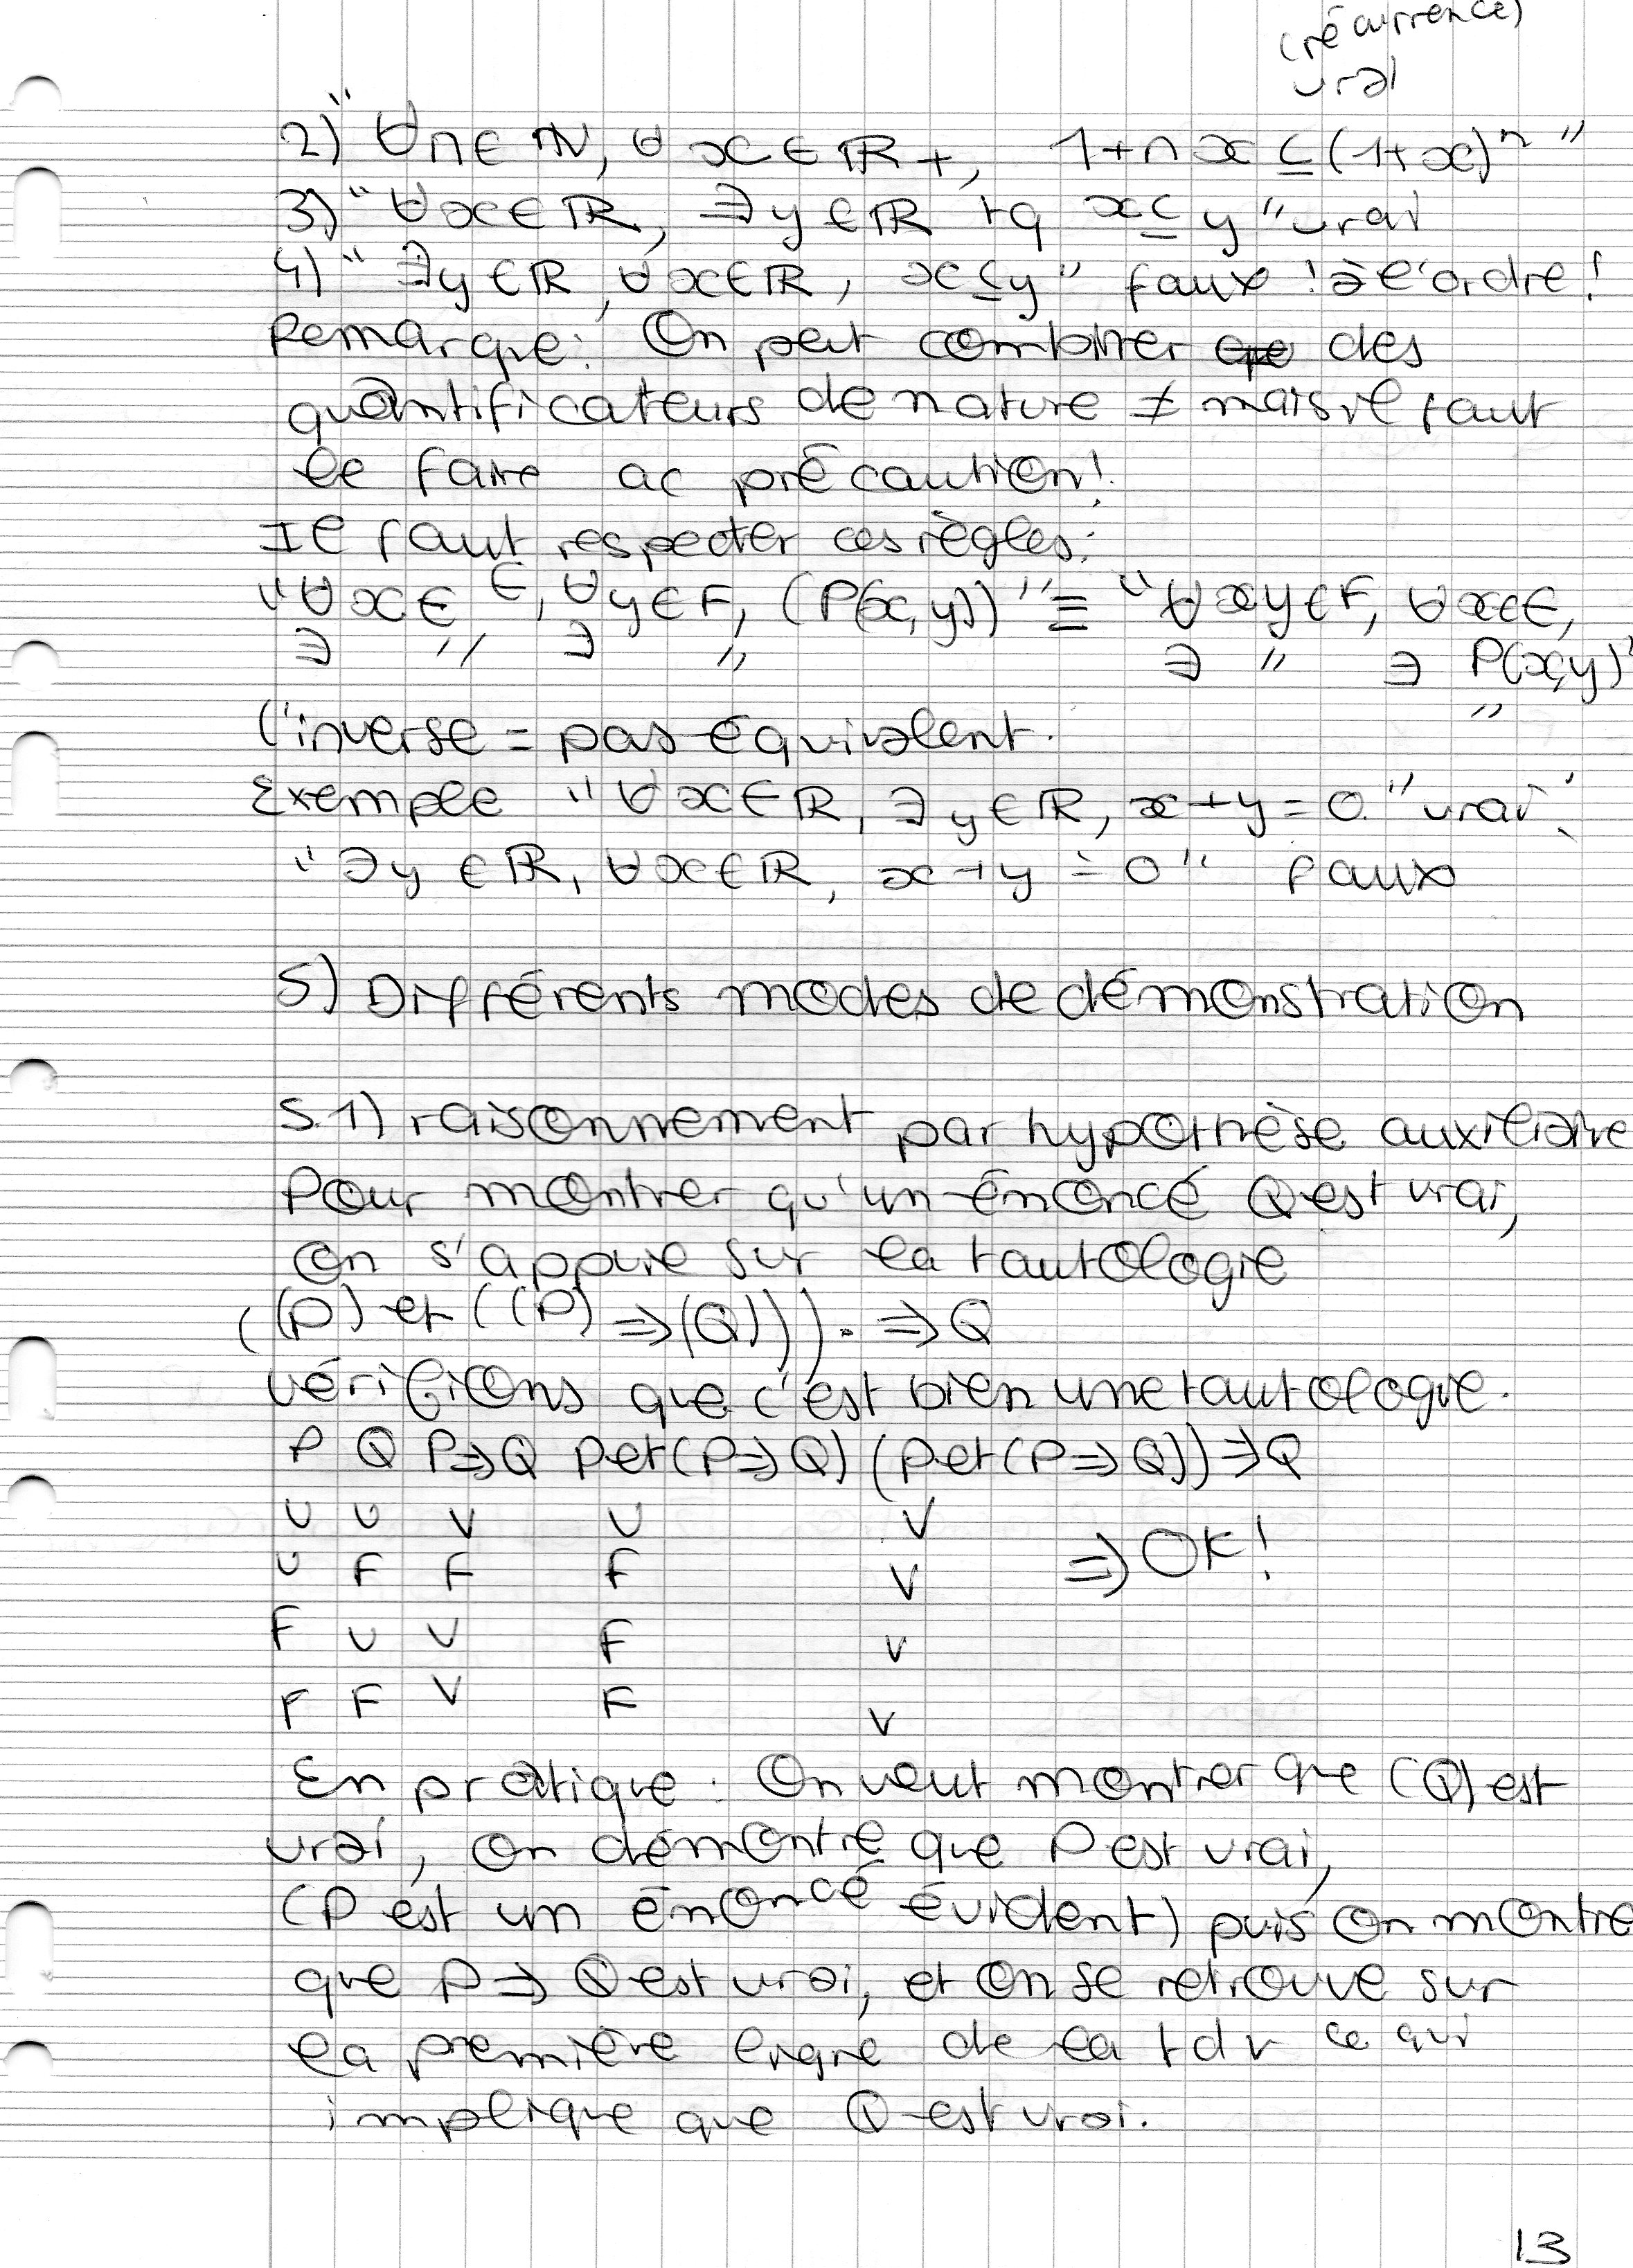 (récurrence)
vrai
2) "∀n ∈ ℕ, ∀ x ∈ ℝ+, 1+nx ≤ (1+x)ⁿ"
3) "∀x ∈ ℝ, ∃y ∈ ℝ tq x ≤ y" vrai
4) "∃y ∈ ℝ, ∀x ∈ ℝ, x ≤ y" faux ! à l'ordre !
Remarque : On peut combiner des
quantificateurs de nature ≠ mais il faut
le faire ac précaution !
Il faut respecter ces règles :
"∀x ∈ E, ∀y ∈ F, (P(x,y))" ≡ "∀y ∈ F, ∀x ∈ E,
∃ " ∃ " ∃ " ∃ P(x,y)"
"
l'inverse = pas équivalent.
Exemple "∀x ∈ ℝ, ∃y ∈ ℝ, x+y = 0." vrai.
"∃y ∈ ℝ, ∀x ∈ ℝ, x+y = 0" faux
5) Différents modes de démonstration
5.1) raisonnement par hypothèse auxiliaire
Pour montrer qu'un énoncé Q est vrai,
on s'appuie sur la tautologie
((P) et ((P) ⇒ (Q))). ⇒ Q
vérifions que c'est bien une tautologie.
P Q P⇒Q P et (P⇒Q) (P et (P⇒Q)) ⇒ Q
V V V V V
⇒ OK !
V F F F V
F V V F V
F F V F V
En pratique : On veut montrer que (Q) est
vrai, on démontre que P est vrai,
(P est un énoncé évident) puis on montre
que P ⇒ Q est vrai, et on se retrouve sur
la première ligne de la tdv ce qui
implique que Q est vrai.
13